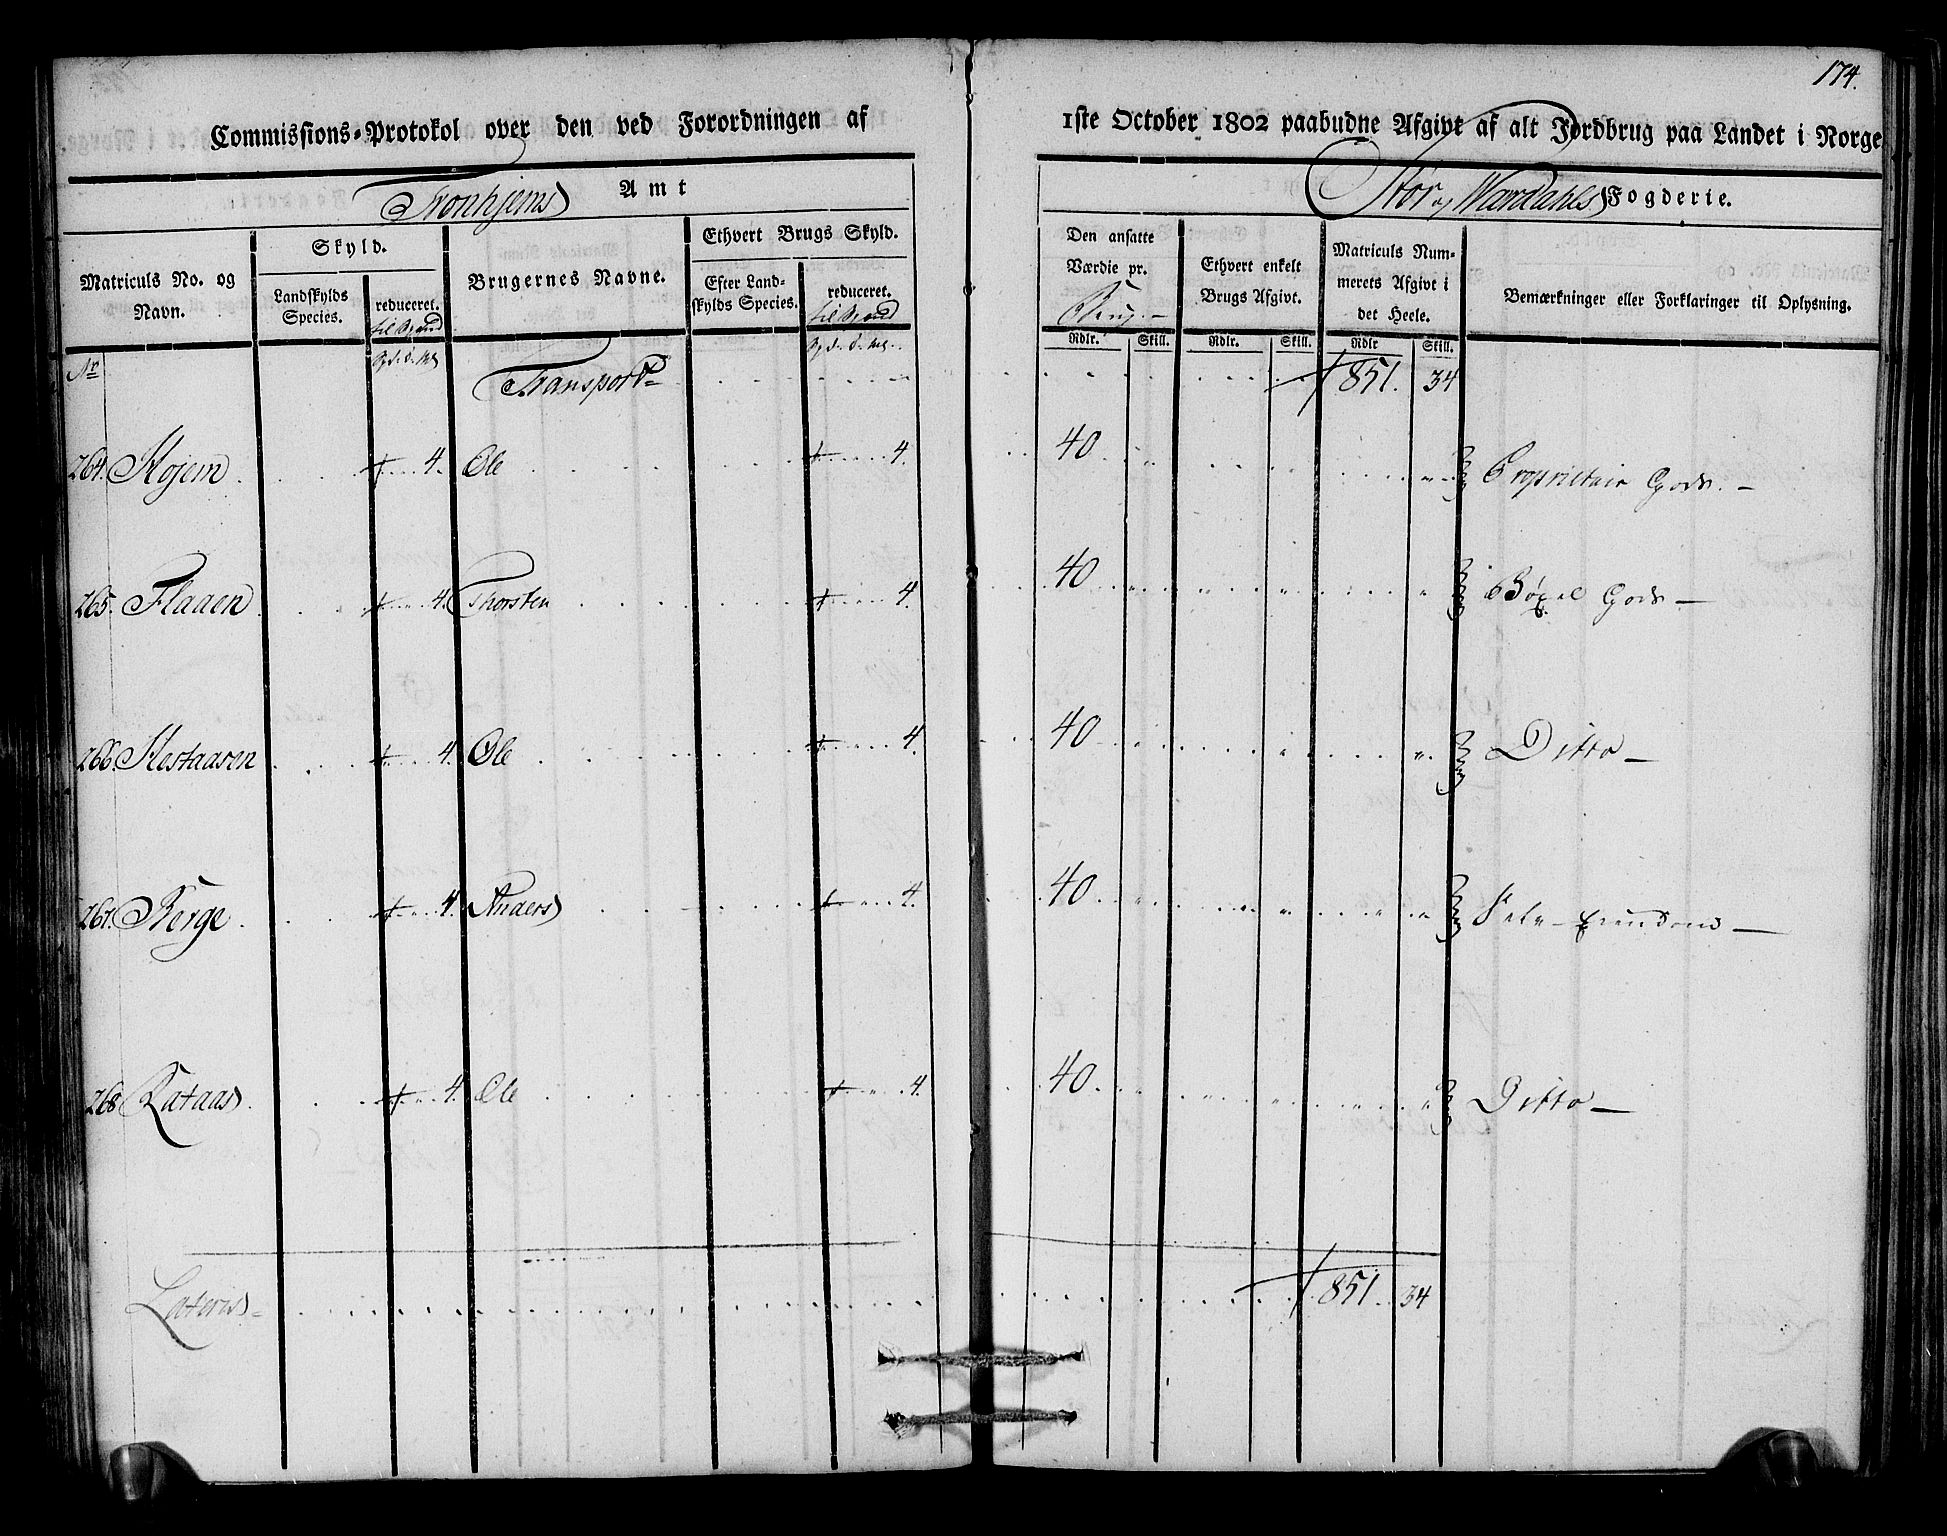 174.
Commissions-Protokol over den ved Forordningen af 1ste October 1802 paabudne Afgivt af alt Jordbrug paa Landet i Norge
Tronhjems Amt
Stør og Wærdahls Fogderie.
Matriculs No. og Navn.
Skyld.
Landskylds Species.
reduceret.
Brugernes Navne.
Ethvert Brugs Skyld.
Efter Landskylds Species.
reduceret.
Den ansatte Værdie pr.
Ethvert enkelt Brugs Afgivt.
Matriculs Nummerets Afgivt i det Heele.
Bemærkninger eller Forklaringer til Oplysning.
Rdlr. Skill. Rdlr. Skill. Rdlr Skill.
Nr Transport 851. 34
264. Hojem 4. Ole 4. 40 Proprietair Gods.
265. Flaaen 4. Thorsten 4. 40 Böxel Gods
266 Hestaasen 4. Ole 4. 40 Ditto
267. Berge 4. Anders 4. 40 Selv-Eiendoms
268 Rataas 4. Ole 4. 40 Ditto
Lateris 851. 34